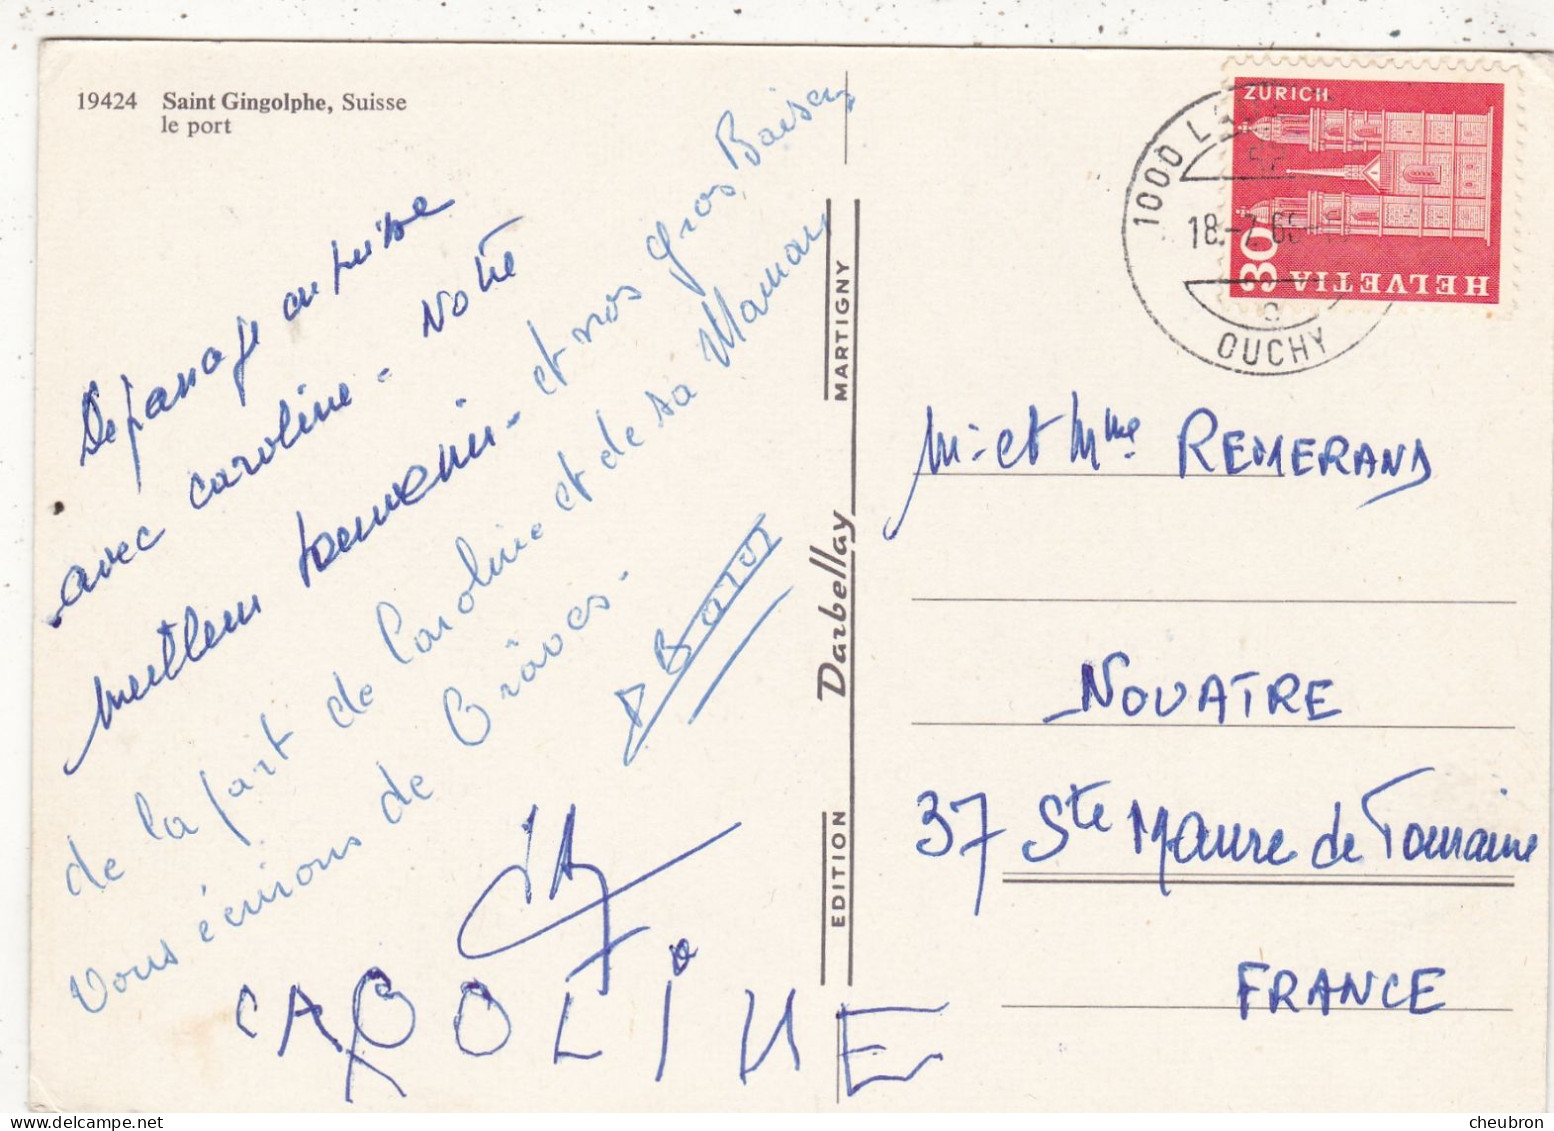 19424 Saint Gingolphe, Suisse
le port
Depannage en suisse
avec caroline - Notre
meilleur souvenir - et nos gros Baisers
de la part de Caroline et de sa Maman
Vous écrirons de Grâves -
CAROLINE
EDITION Darbellay MARTIGNY
ZÜRICH
30
HELVETIA
1000
18.-7.6
OUCHY
M. et Mme REMERAND
NOUATRE
37 Ste Maure de Touraine
FRANCE
cheubron